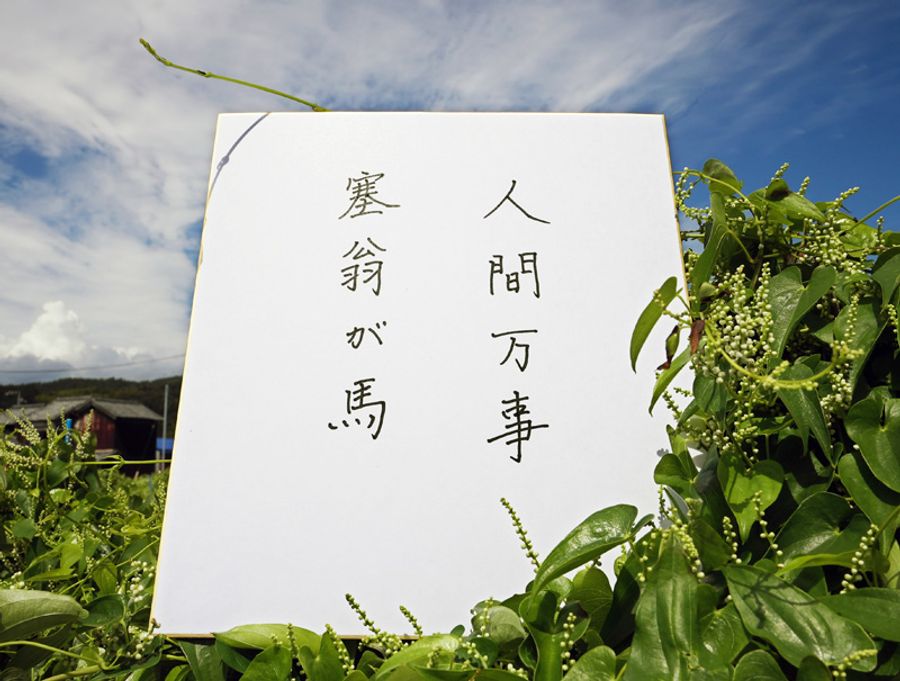 人間万事
塞翁が馬